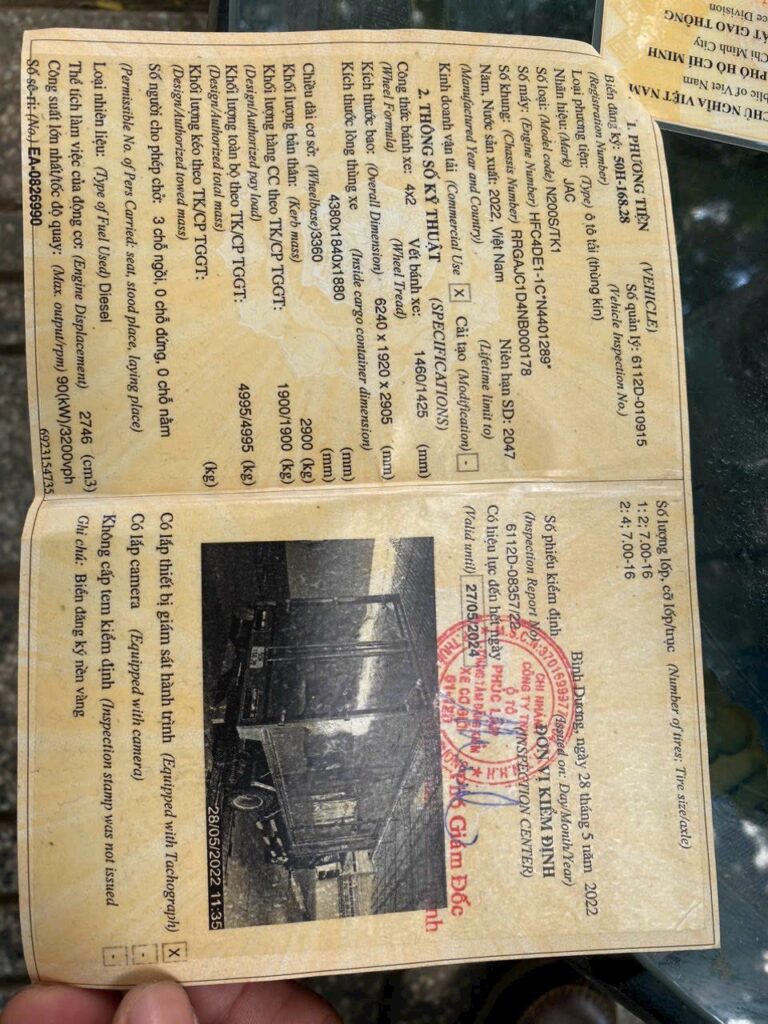 1. PHƯƠNG TIỆN (VEHICLE)
Biển đăng ký: 50H-168.28 Số quản lý: 6112D-010915
(Registration Number) (Vehicle Inspection No.)
Loại phương tiện: (Type) ô tô tải (thùng kín)
Nhãn hiệu: (Mark) JAC
Số loại: (Model code) N200S/TK1
Số máy: (Engine Number) HFC4DE1-1C*N4401289*
Số khung: (Chassis Number) RRGAJC1D4NB000178
Năm, Nước sản xuất: 2022, Việt Nam Niên hạn SD: 2047
(Manufactured Year and Country) (Lifetime limit to)
Kinh doanh vận tải (Commercial Use X Cải tạo (Modification) -
2. THÔNG SỐ KỸ THUẬT (SPECIFICATIONS)
Công thức bánh xe: 4x2 Vết bánh xe: 1460/1425 (mm)
(Wheel Formula) (Wheel Tread)
Kích thước bao: (Overall Dimension) 6240 x 1920 x 2905 (mm)
Kích thước lòng thùng xe (Inside cargo container dimension)
4380x1840x1880 (mm)
Chiều dài cơ sở: (Wheelbase)3360 (mm)
Khối lượng bản thân: (Kerb mass) 2900 (kg)
Khối lượng hàng CC theo TK/CP TGGT: 1900/1900 (kg)
(Design/Authorized pay load)
Khối lượng toàn bộ theo TK/CP TGGT: 4995/4995 (kg)
(Design/Authorized total mass)
Khối lượng kéo theo TK/CP TGGT: (kg)
(Design/Authorized towed mass)
Số người cho phép chở: 3 chỗ ngồi, 0 chỗ đứng, 0 chỗ nằm
(Permissible No. of Pers Carried: seat, stood place, laying place)
Loại nhiên liệu: (Type of Fuel Used) Diesel
Thể tích làm việc của động cơ: (Engine Displacement) 2746 (cm3)
Công suất lớn nhất/tốc độ quay: (Max. output/rpm) 90(kW)/3200vph
Số sê-ri: (No.) EA-0826990 6923154735
Số lượng lốp, cỡ lốp/trục (Number of tires; Tire size/axle)
1: 2; 7.00-16
2: 4; 7.00-16
Bình Dương, ngày 28 tháng 5 năm 2022
(Issued on: Day/Month/Year)
Số phiếu kiểm định ĐƠN VỊ KIỂM ĐỊNH
(Inspection Report No) (INSPECTION CENTER)
6112D-08357/22
Có hiệu lực đến hết ngày
(Valid until) 27/05/2024
CHI NHÁNH
CÔNG TY TNHH
Ô TÔ
PHÚC
XE CƠ GIỚI
Giám Đốc
28/05/2022 11:35
Có lắp thiết bị giám sát hành trình (Equipped with Tachograph) X
Có lắp camera (Equipped with camera) -
Không cấp tem kiểm định (Inspection stamp was not issued -
Ghi chú: Biển đăng ký nền vàng
CHỦ NGHĨA VIỆT NAM
Viet Nam
PHỐ HỒ CHÍ MINH
Chi Minh City
GIAO THÔNG
Division